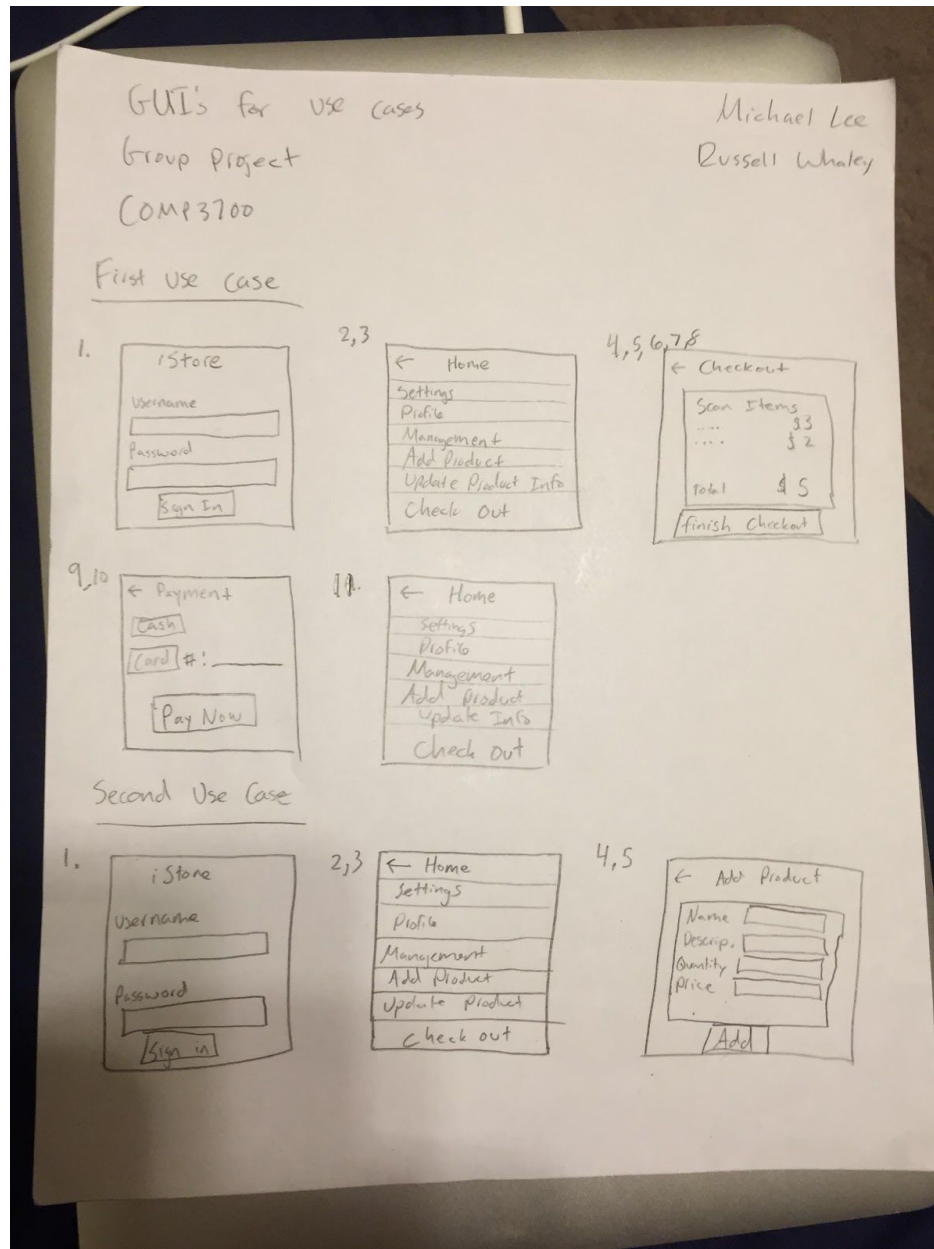 GUI's for use cases
Michael Lee
Group Project
Russell Whaley
COMP3700
First Use Case
1.
iStore
Username
Password
Sign In
2,3
← Home
Settings
Profile
Management
Add Product
Update Product Info
Check Out
4,5,6,7,8
← Checkout
Scan Items
.... $3
.... $2
Total $5
finish Checkout
9,10
← Payment
Cash
Card #:
Pay Now
11.
← Home
Settings
Profile
Management
Add Product
Update Info
Check Out
Second Use Case
1.
iStore
Username
Password
Sign in
2,3
← Home
Settings
Profile
Management
Add Product
Update Product
Check out
4,5
← Add Product
Name
Descrip.
Quantity
Price
Add